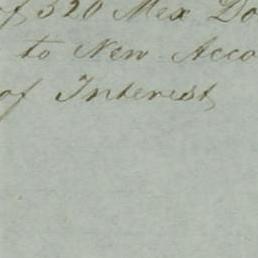 of 320 Mex Do
to New Acco
of Interest